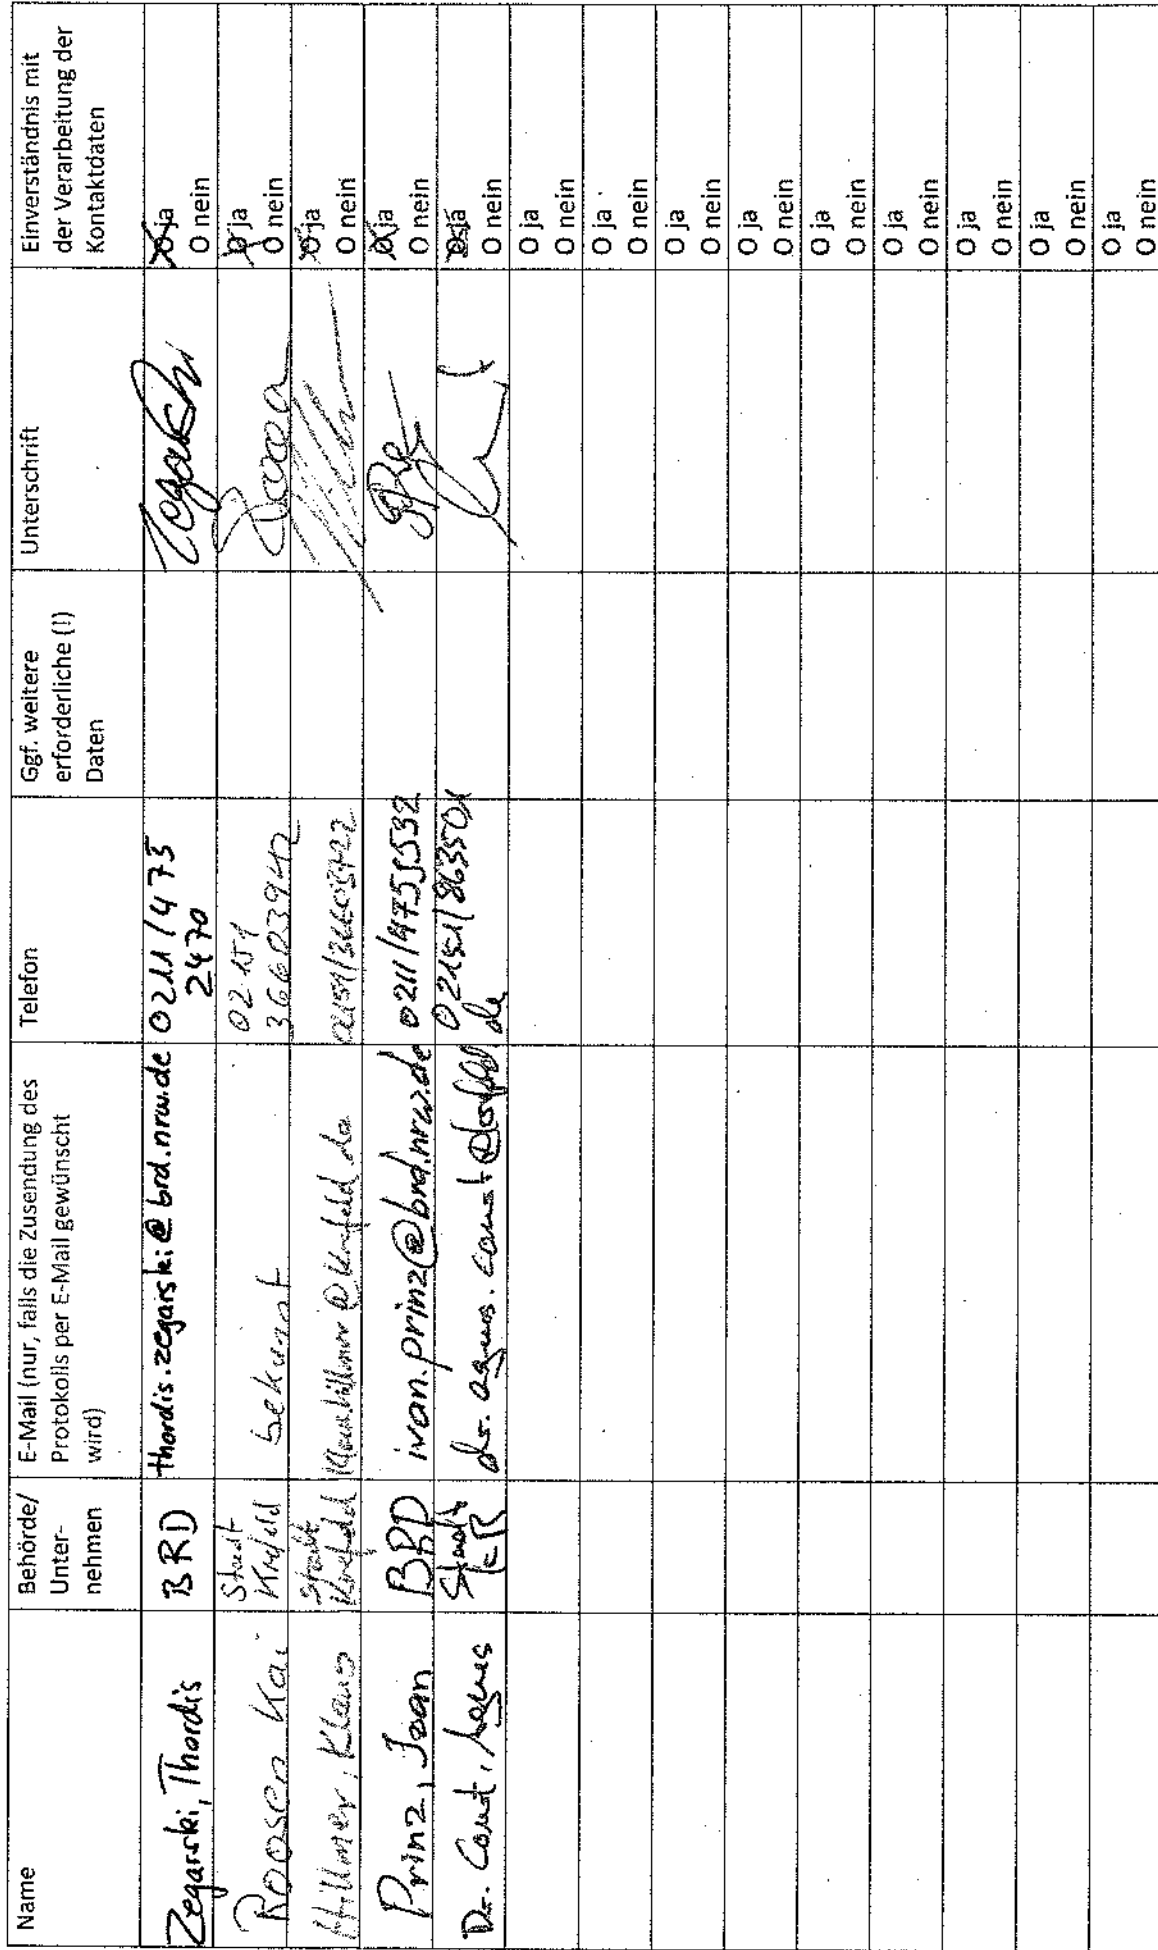 Name
Behörde/
Unter-
nehmen
E-Mail (nur, falls die Zusendung des
Protokolls per E-Mail gewünscht
wird)
Telefon
Ggf. weitere
erforderliche (!)
Daten
Unterschrift
Einverständnis mit
der Verarbeitung der
Kontaktdaten
Zegarski, Thordis
BRD
thordis.zegarski@brd.nrw.de
0211/475
2470
O ja
O nein
Roosen Kai
Stadt
Krefeld
bekannt
02151
36603942
O ja
O nein
Hillmer, Klaus
Stadt
Krefeld
@krefeld.de
O ja
O nein
Prinz, Ivan
BRD
ivan.prinz@brd.nrw.de
0211/4755532
O ja
O nein
Dr.
Stadt
KR
O ja
O nein
O ja
O nein
O ja
O nein
O ja
O nein
O ja
O nein
O ja
O nein
O ja
O nein
O ja
O nein
O ja
O nein
O ja
O nein